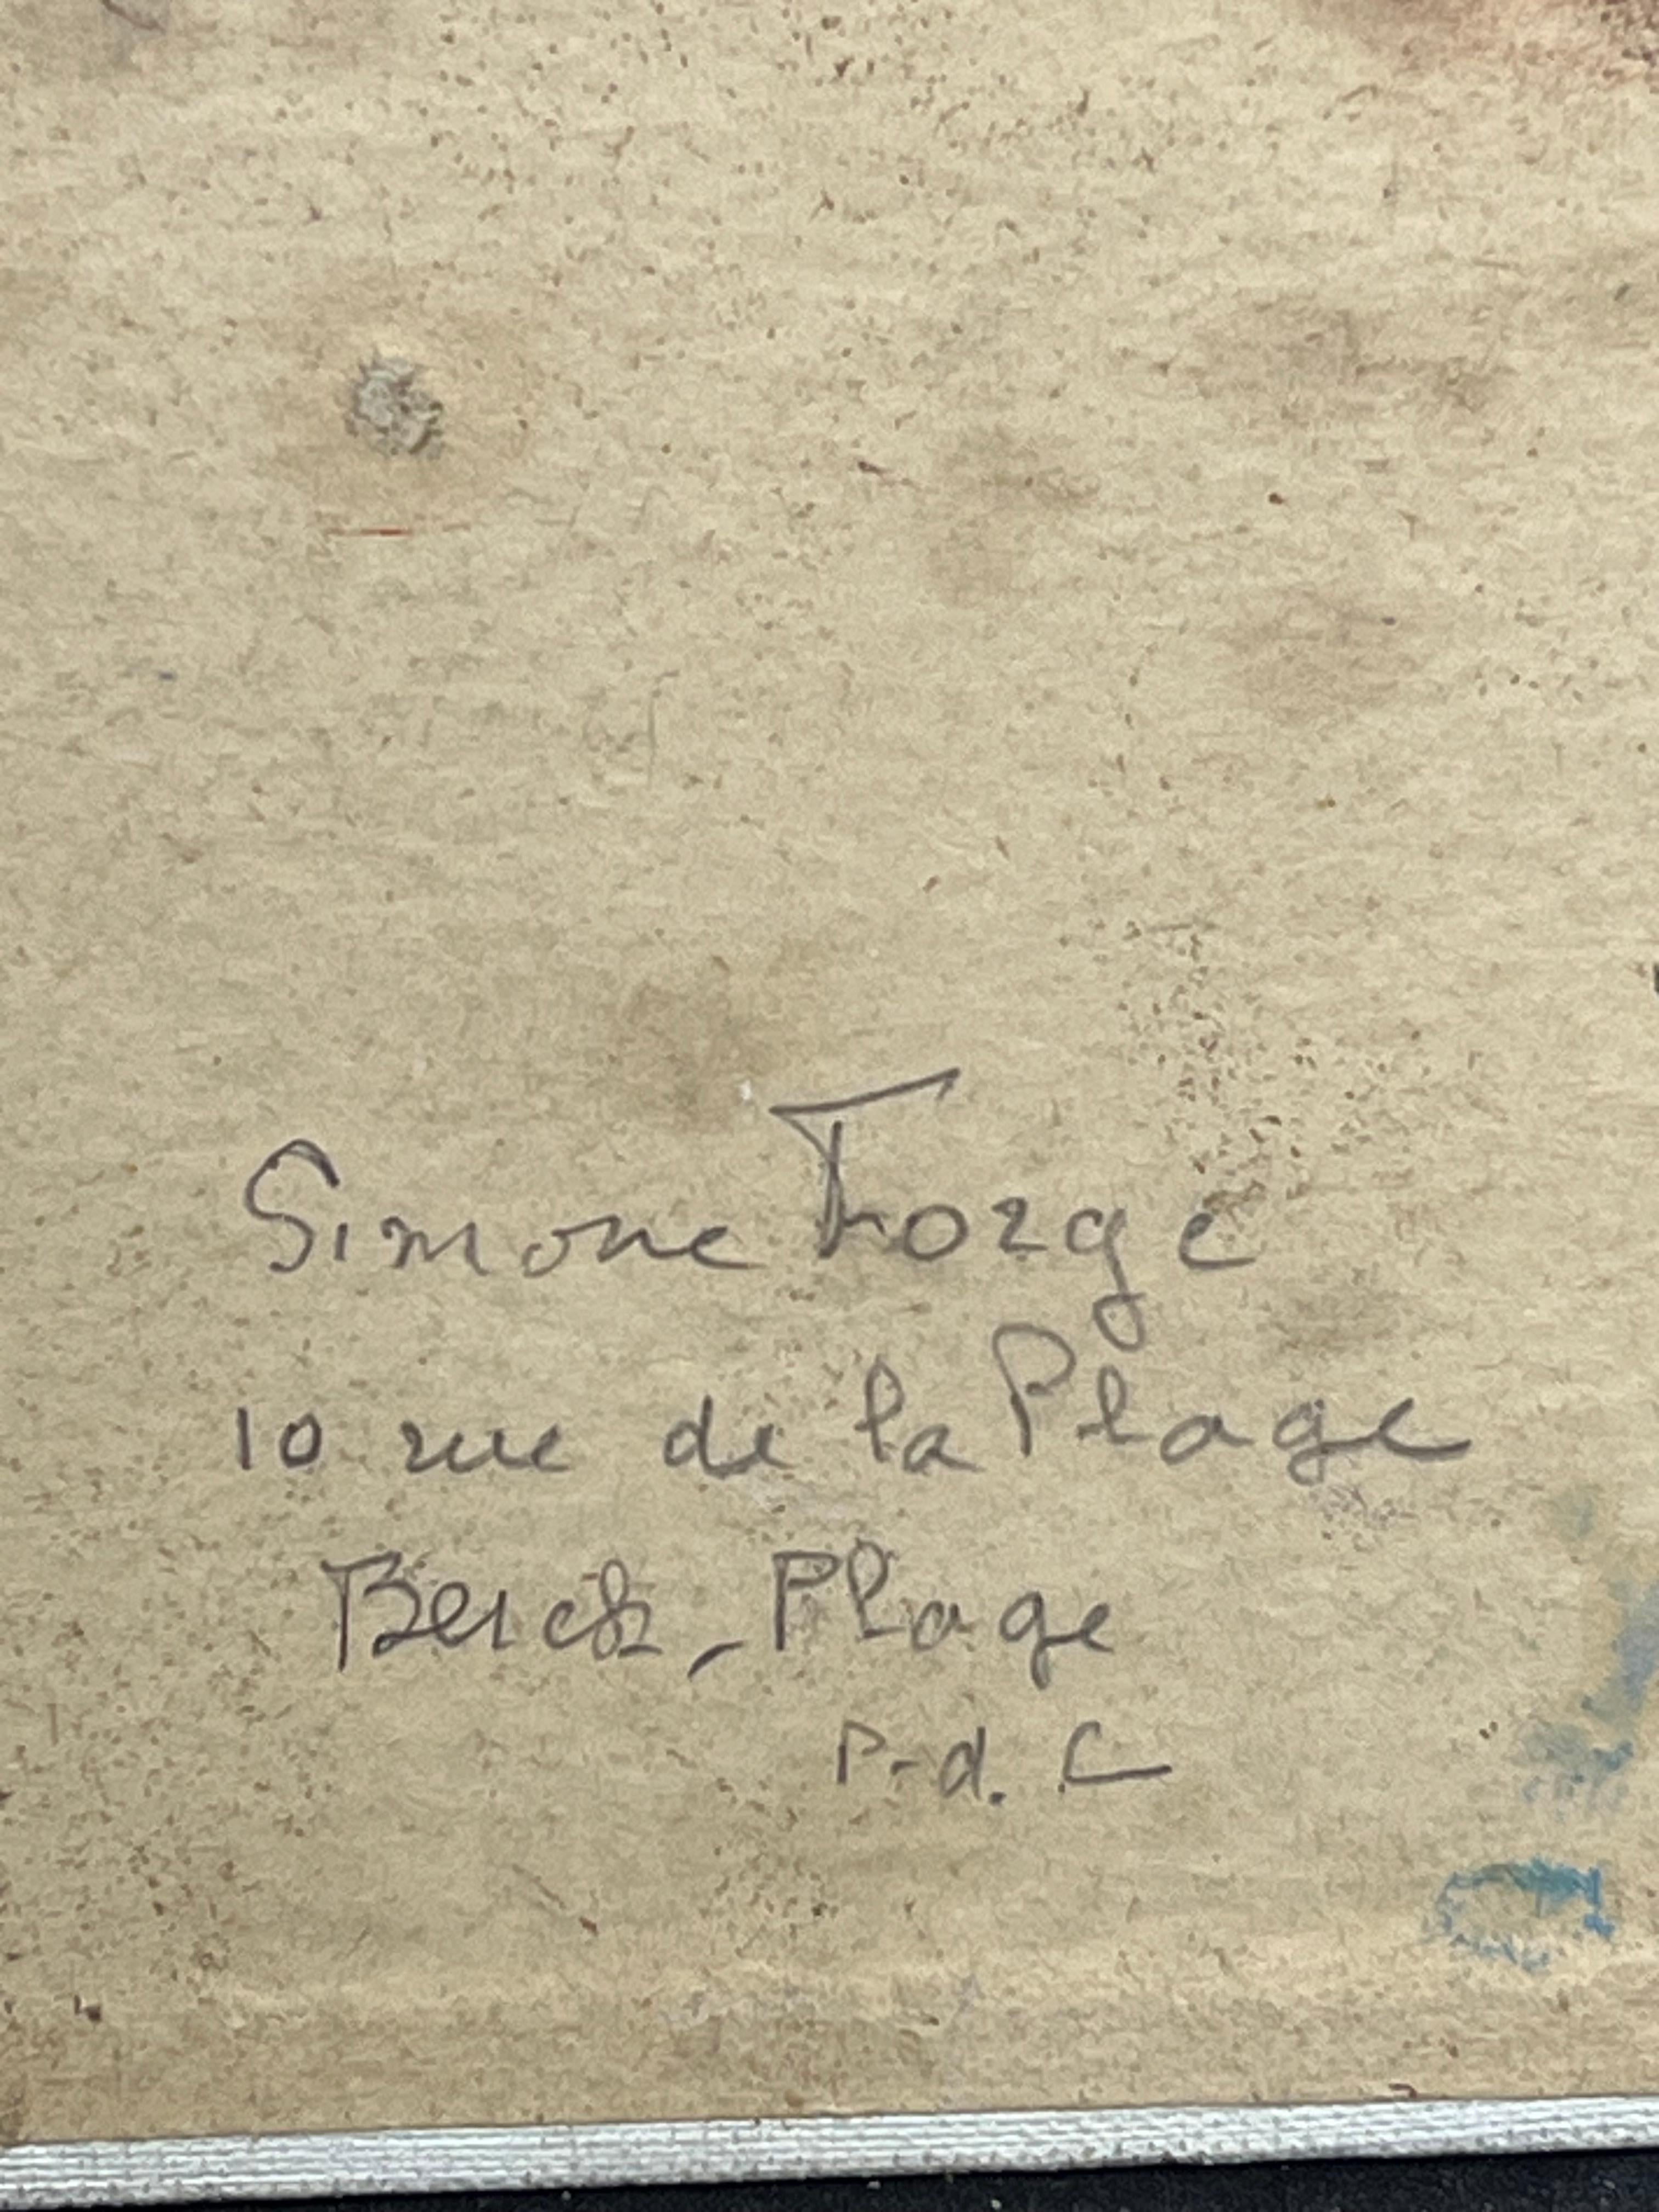 Simone Forge
10 rue de la Plage
Berck-Plage
P-d. C